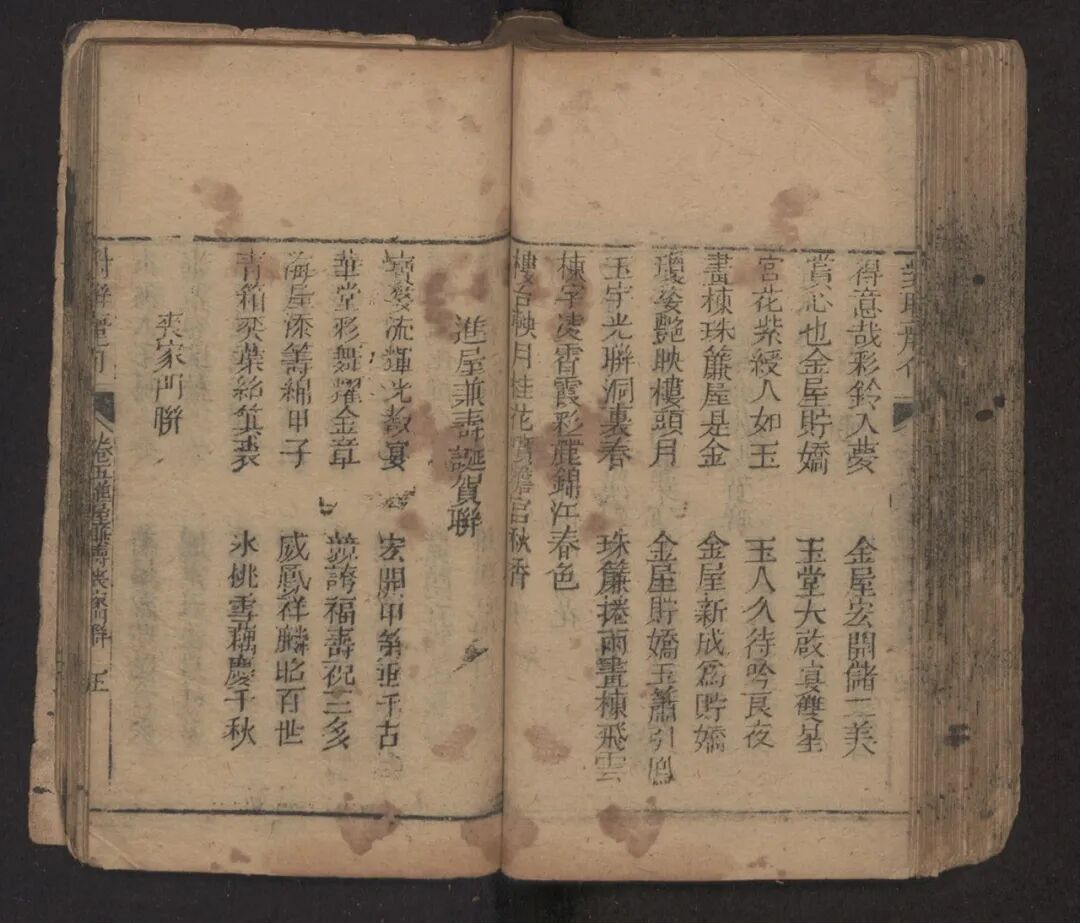 得意哉彩鈴入夢 金屋宏開儲二美
賞心也金屋貯嬌 玉堂大啟宴雙星
宮花紫綬人如玉 玉人久待吟良夜
畫棟珠簾屋是金 金屋新成爲貯嬌
瓊姿艷映樓頭月 金屋貯嬌玉簫引鳳
玉宇光聯洞裏春 珠簾捲雨畫棟飛雲
棟宇凌霄霞彩麗錦江春色
樓台映月桂花 宮秋香
進屋兼壽誕賀聯
寶婺流輝光敞宴 宏開甲第垂千古
華堂彩舞耀金章 競誇福壽祝三多
海屋添籌綿甲子 威鳳祥麟昭百世
青箱奕葉紹箕裘 氷桃雪藕慶千秋
喪家門聯
卷五進屋兼壽喪家門聯